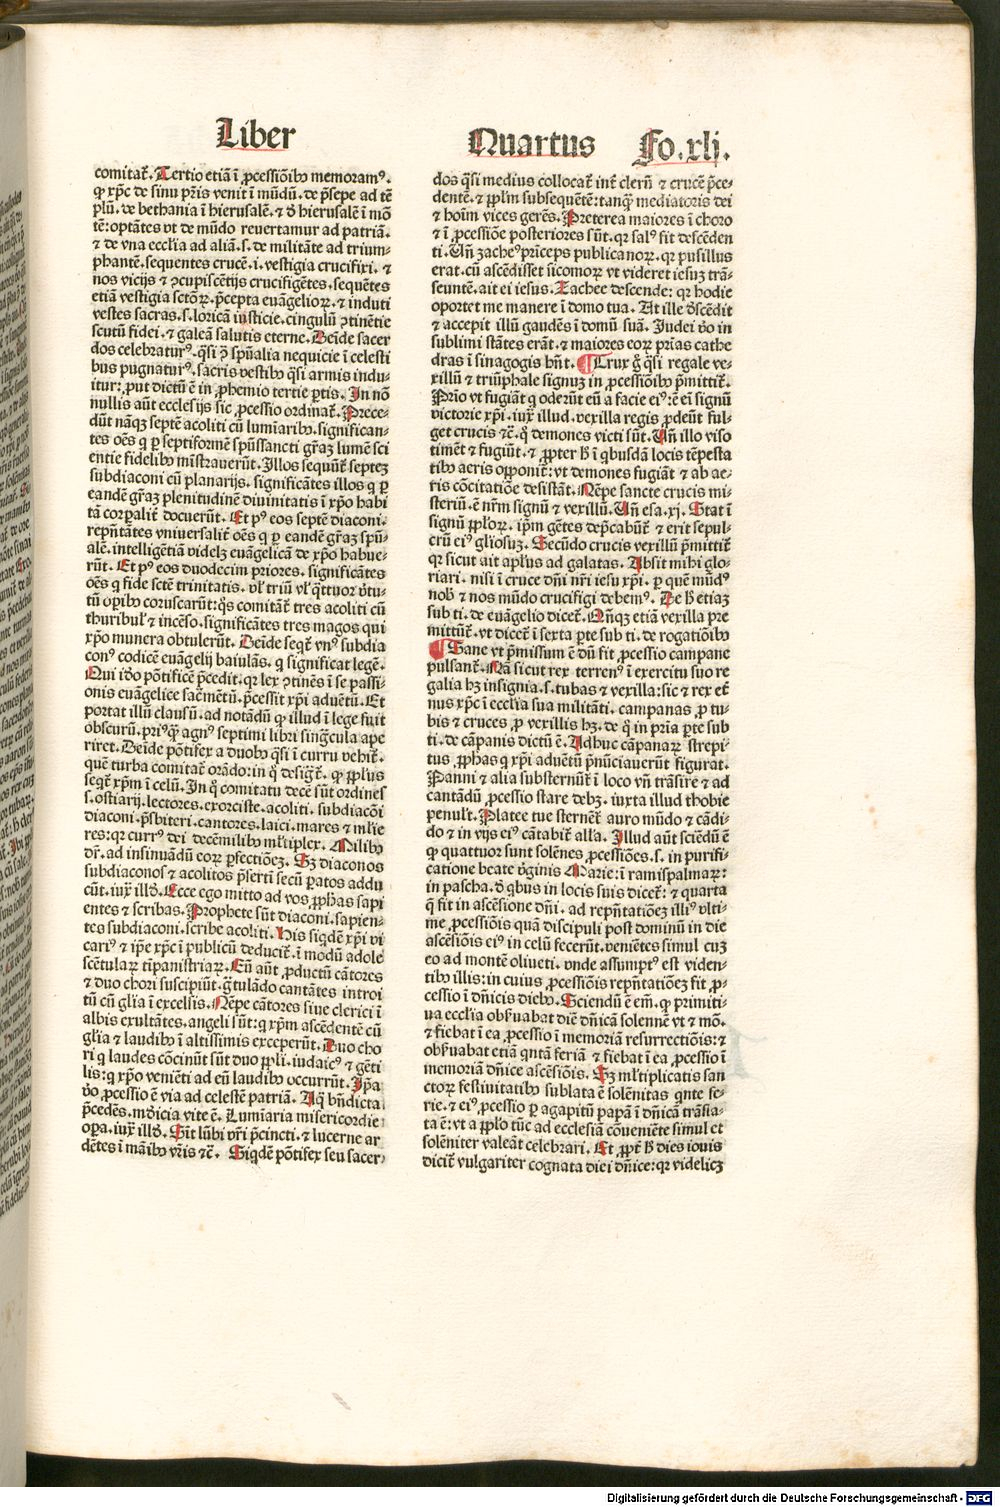 Liber
Quartus Fo.xlj.
comitat̃. Tertio etiã ĩ ꝓcessiõibꝰ memoramꝰ.
ꝙ xp̃c de sinu pr̃is venit ĩ mũdũ. de p̃sepe ad tẽ
plũ. de bethania ĩ hierusalẽ. ⁊ đ hierusalẽ ĩ mõ
tẽ: optãtes vt de mũdo reuertamur ad patriã.
⁊ de vna ecclia ad aliã. s. de militãte ad trium-
phantẽ. sequentes crucẽ. i. vestigia crucifixi. ⁊
nos vicijs ⁊ ꝯcupiscẽtijs crucifigẽtes. sequẽtes
etiã vestigia sctõꝝ. p̃cepta euãgelioꝝ. ⁊ induti
vestes sacras. s. loricã iusticie. cingulũ ꝯtinẽtie
scutũ fidei. ⁊ galeã salutis eterne. Deĩde sacer
dos celebraturꝰ. q̃si ꝯ̃ spũalia nequicie ĩ celesti
bus pugnaturꝰ. sacris vestibꝰ q̃si armis indu-
itur: put dictũ ẽ in ꝓhemio tertie ꝑtis. In nõ
nullis aũt ecclesijs sic ꝓcessio ordinat̃. Prece-
dũt nãqꝫ septẽ acoliti cũ lumĩaribꝰ. significan-
tes oẽs q̃ ꝑ septiformẽ spũssancti gr̃aꝫ lumẽ sci
entie fidelibꝰ mĩstrauerũt. Illos sequũt̃ septeꝫ
subdiaconi cũ planarijs. significãtes illos q̃ ꝑ
eandẽ gr̃aꝫ plenitudinẽ diuinitatis ĩ xp̃o habi
tã corꝑalit̃ docuerũt. Et pꝰ eos septẽ diaconi.
repñtãtes vniuersalit̃ oẽs q̃ ꝑ eandẽ gr̃aꝫ spũ-
alẽ. intelligẽtiã videlꝫ euãgelicã de xp̃o habue-
rũt. Et pꝰ eos duodecim priores. significãtes
oẽs q̃ fide sctẽ trinitatis. vl̃ triũ vl̃ q̃ttuor v̾tu-
tũ oꝑibꝰ coruscarũt: q̃s comitãt̃ tres acoliti cũ
thuribul̃ ⁊ incẽso. significãtes tres magos qui
xp̃o munera obtulerũt. Deĩde seqt̃ vnꝰ subdia
conꝰ codicẽ euãgelij baiulãs. q̃ significat legẽ.
Qui iđo põtificẽ p̃cedit. qꝛ lex ꝯtinẽs ĩ se passi-
onis euãgelice sacr̃mẽtũ. p̃cessit xp̃i aduẽtũ. Et
portat illũ clausũ. ad notãdũ ꝙ illud ĩ lege fuit
obscurũ. priꝰqꝫ̃ agnꝰ septimi libri singc̃ula ape
riret. Deĩde põtifex a duobꝰ q̃si ĩ curru vehit̃.
quẽ turba comitat̃ orãdo: in q̃ desigt̃. ꝙ pp̃l̃us
seqt̃ xp̃m ĩ celũ. In q̃ comitatu decẽ sũt ordines
s. ostiarij. lectores. exorciste. acoliti. subdiacõi
diaconi. p̃sbiteri. cantores. laici. mares ⁊ ml̃ie
res: qꝛ currꝰ dei decẽmilibꝰ ml̃tiplex. Milibꝰ
dr̃. ad insinuãdũ eoꝝ ꝑfectiõeꝫ. Sꝫ diaconos
subdiaconos ⁊ acolitos p̃sertĩ secũ ꝑatos addu
cũt. iux̃ ill̃đ. Ecce ego mitto ad vos ꝓph̃as sapi
entes ⁊ scribas. Prophete sũt diaconi. sapien-
tes subdiaconi. scribe acoliti. His siqdẽ xp̃i vi
cariꝰ ⁊ ip̃e xp̃c ĩ publicũ deducit̃. ĩ modũ adole
scẽtulaꝝ tĩpanistriaꝝ. Cũ aũt ꝓductũ cãtores
⁊ duo chori suscipiũt. g̃tulãdo cantãtes introi
tũ cũ gl̃ia ĩ excelsis. Nẽpe cãtores siue clerici ĩ
albis exultãtes. angeli sũt: q̃ xp̃m ascẽdentẽ cũ
gl̃ia ⁊ laudibꝰ ĩ altissimis exceperũt. Duo cho
ri q̃ laudes cõcinũt sũt duo pp̃li. iudaicꝰ ⁊ gẽti
lis: q̃ xp̃o veniẽti ad eũ laudibꝰ occurrũt. Ip̃a
v̾o ꝓcessio ẽ via ad celestẽ patriã. Aq̃ bñdicta
p̃cedẽs. mũdicia vite ẽ. Lumĩaria misericordie
oꝑa. iux̃ ill̃đ. Sĩt lũbi vr̃i p̃cincti. ⁊ lucerne ar
dẽtes ĩ mãibꝰ vr̃is ⁊c̃. Siqdẽ põtifex seu sacer
dos q̃si medius collocat̃ int̃ clerũ ⁊ crucẽ p̃ce-
dentẽ. ⁊ pp̃lm subsequẽtẽ: tanqꝫ̃ mediatoris dei
⁊ hoĩm vices gerẽs. Preterea maiores ĩ choro
⁊ ĩ ꝓcessiõe posteriores sũt. qꝛ salꝰ fit descẽden
ti. Uñ zacheꝰ prĩceps publicanoꝝ. qꝛ pusillus
erat. cũ ascẽdisset sicomoꝝ vt videret iesuꝫ trã-
seuntẽ. ait ei iesus. Zachee descende: qꝛ hodie
oportet me manere ĩ domo tua. At ille đscẽdit
⁊ accepit illũ gaudẽs ĩ domũ suã. Judei v̾o in
sublimi stãtes erãt. ⁊ maiores eoꝝ pr̃ias cathe
dras ĩ sinagogis hñt. ¶ Crux g̃ q̃si regale ve-
xillũ ⁊ triũphale signuꝫ in ꝓcessiõibꝰ p̃mittit̃.
Pr̃io vt fugiãt q̃ oderũt eũ a facie eiꝰ: ẽ eĩ signũ
victorie xp̃i. iux̃ illud. vexilla regis ꝓdeũt ful-
get crucis ⁊c̃. q̃ demones victi sũt. Uñ illo viso
timẽt ⁊ fugiũt. ⁊ ꝓpter h̾ ĩ q̃busdã locis tẽpesta
tibꝰ aeris opponit̃: vt demones fugiãt ⁊ ab ae-
ris cõcitatiõe desistãt. Nẽpe sancte crucis mi-
steriũ. ẽ nr̃m signũ ⁊ vexillũ. Uñ esa. xj. Stat ĩ
signũ pp̃loꝝ. ip̃m gẽtes dep̃cabũt̃ ⁊ erit sepul-
crũ eiꝰ gl̃iosuꝫ. Secũdo crucis vexillũ p̃mittit̃
qꝛ sicut ait apl̃us ad galatas. Absit mihi glo-
riari. nisi ĩ cruce dñi nr̃i iesu xp̃i. ꝑ quẽ mũdꝰ
nob̾ ⁊ nos mũdo crucifigi debemꝰ. De h̾ etiaꝫ
sub ti. de euãgelio dicet̃. Qñqꝫ etiã vexilla pre
mittũt̃. vt dicet̃ ĩ sexta ꝑte sub ti. de rogatiõibꝰ
¶ Sane vt p̃missum ẽ dũ fit ꝓcessio campane
pulsant̃. Nã sicut rex terrenꝰ ĩ exercitu suo re
galia hꝫ insignia. s. tubas ⁊ vexilla: sic ⁊ rex et̃
nus xp̃c ĩ ecclia sua militãti. campanas ꝓ tu-
bis ⁊ cruces ꝓ vexillis hꝫ. de q̃ in pr̃ia ꝑte sub
ti. de cãpanis dictũ ẽ. Adhuc cãpanaꝝ strepi-
tus ꝓph̃as q̃ xp̃i aduẽtũ p̃nũciauerũt figurat.
Panni ⁊ alia substernũt̃ ĩ loco vñ trãsire ⁊ ad
cantãdũ ꝓcessio stare debꝫ. iuxta illud thobie
penul̃t. Platee tue sternẽt̃ auro mũdo ⁊ cãdi-
do ⁊ in vijs eiꝰ cãtabit̃ all̃a. Illud aũt sciẽdũ ẽ
ꝙ quattuor sunt solẽnes ꝓcessiões. s. in purifi
catione beate v̾ginis Marie: ĩ ramispalmaꝝ:
in pascha. đ q̃bus in locis suis dicet̃: ⁊ quarta
q̃ fit in ascẽsione dñi. ad repñtatiõeꝫ illiꝰ vlti-
me ꝓcessiõis quã discipuli post dominũ in die
ascẽsiõis eiꝰ in celũ fecerũt. veniẽtes simul cuꝫ
eo ad montẽ oliueti. vnde assumptꝰ est viden-
tibꝰ illis: in cuius ꝓcessiõis repñtatiõeꝫ fit ꝓ-
cessio ĩ dñicis diebꝰ. Sciendũ ẽ em̃. ꝙ primiti-
ua ecclia obẜuabat diẽ dñicã solennẽ vt ⁊ mõ.
⁊ fiebat ĩ ea ꝓcessio ĩ memoriã resurrectiõis: ⁊
obẜuabat etiã qntã feriã ⁊ fiebat ĩ ea ꝓcessio ĩ
memoriã dñice ascẽsiõis. Sꝫ ml̃tiplicatis san
ctoꝝ festiuitatibꝰ sublata ẽ solẽnitas qnte fe-
rie. ⁊ eiꝰ ꝓcessio ꝑ agapitũ papã ĩ dñicã trãsla-
ta ẽ: vt a pp̃lo tũc ad ecclesiã cõueniẽte simul et
solẽniter valeãt celebrari. Et ꝓpt̃ h̾ dies iouis
dicit̃ vulgariter cognata diei dñice: qꝛ videlicꝫ
Digitalisierung gefördert durch die Deutsche Forschungsgemeinschaft - DFG